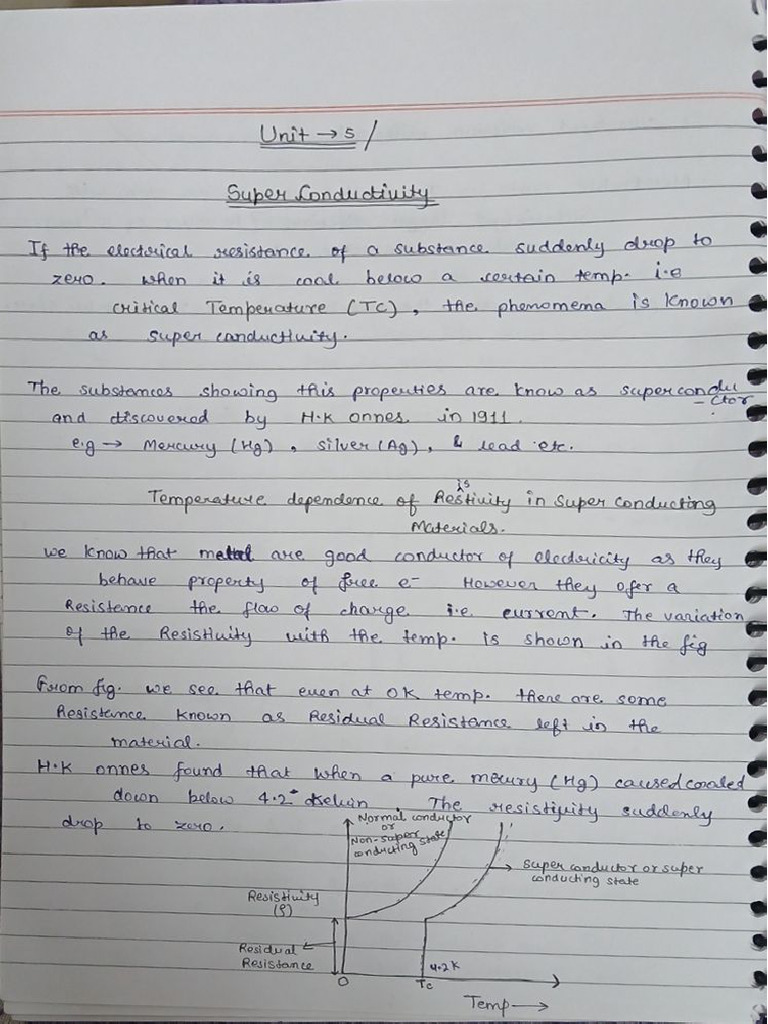 Unit → 5 /
Super Conductivity
If the electrical resistance of a substance suddenly drop to
zero. when it is cool below a certain temp. i.e
critical Temperature (Tc), the phenomena is known
as super conductivity.
The substances showing this properties are know as supercondu
- ctor
and discovered by H.K onnes in 1911.
e.g → Mercury (Hg), silver (Ag), & lead etc.
Temperature dependence of Resistivity in Super Conducting
Materials.
we know that metal are good conductor of electricity as they
behave property of free e- However they ofer a
Resistance the flow of charge i.e. current. The variation
of the Resistivity with the temp. is shown in the fig
From fig. we see that even at 0K temp. there are some
Resistance known as Residual Resistance left in the
material.
H.K onnes found that when a pure mercury (Hg) cooled
down below 4.2° kelvin. The resistivity suddenly
drop to zero.
Normal conductor
or
Non-super
conducting state
Super conductor or super
conducting state
Resistivity
(ρ)
Residual
Resistance
4.2K
0
Tc
Temp →